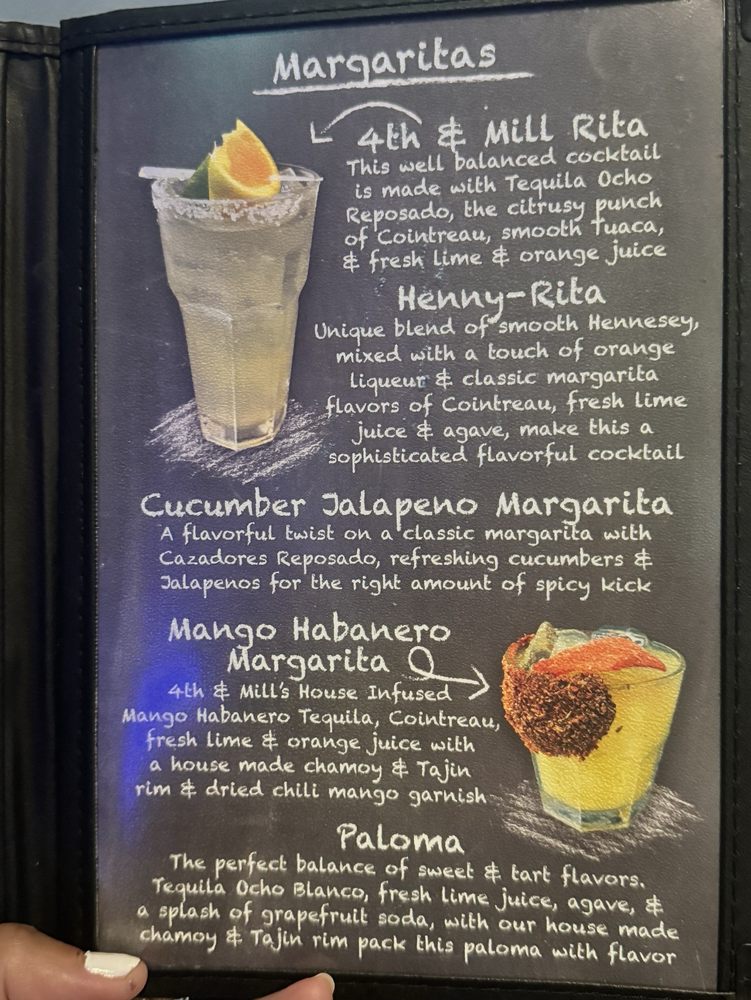 Margaritas
4th & Mill Rita
This well balanced cocktail
is made with Tequila Ocho
Reposado, the citrusy punch
of Cointreau, smooth Tuaca,
& fresh lime & orange juice
Henny-Rita
Unique blend of smooth Hennesey,
mixed with a touch of orange
liqueur & classic margarita
flavors of Cointreau, fresh lime
juice & agave, make this a
sophisticated flavorful cocktail
Cucumber Jalapeno Margarita
A flavorful twist on a classic margarita with
Cazadores Reposado, refreshing cucumbers &
Jalapenos for the right amount of spicy kick
Mango Habanero
Margarita
4th & Mill's House Infused
Mango Habanero Tequila, Cointreau,
fresh lime & orange juice with
a house made chamoy & Tajin
rim & dried chili mango garnish
Paloma
The perfect balance of sweet & tart flavors.
Tequila Ocho Blanco, fresh lime juice, agave, &
a splash of grapefruit soda, with our house made
chamoy & Tajin rim pack this paloma with flavor